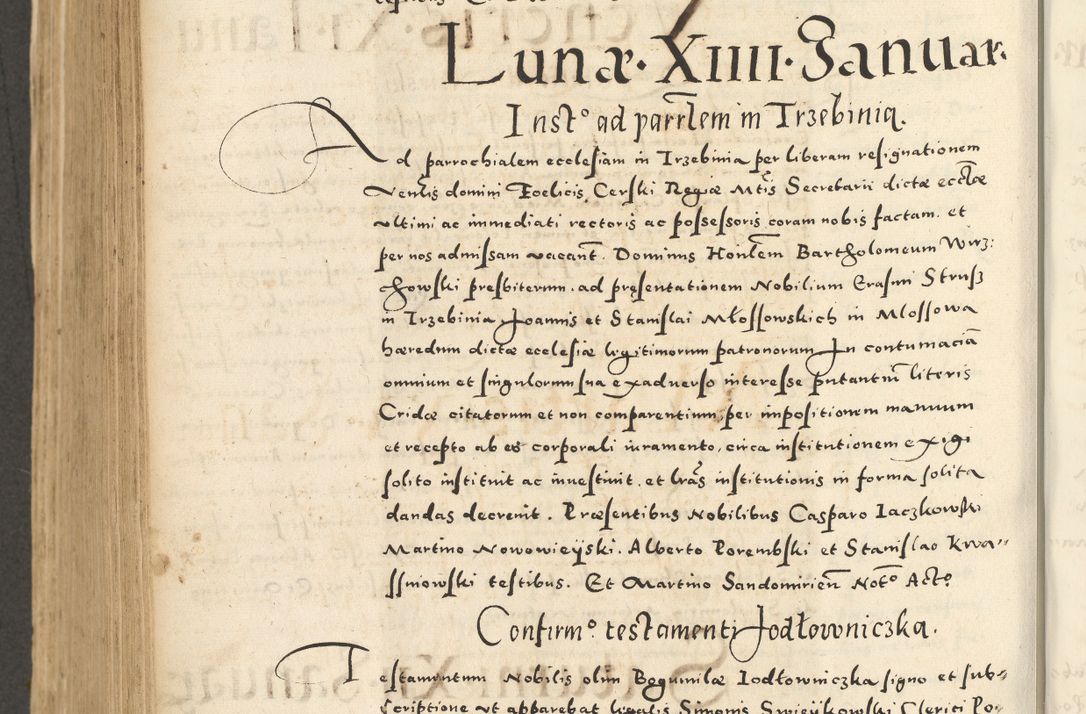 Lunæ · XIIII · Ianuar.
Inst° ad parrlem in Trzebinia.
Ad parrochialem ecclesiam in Trzebinia per liberam resignationem
Venlis domini Foelicis Cerski Regiæ Mtis Secretarii dictæ ecctæ
ultimi ac immediati rectoris ac possessoris coram nobis factam. et
per nos admissam vacant. Dominus Honlem Bartholomeum Wirz:
chowski presbiterum. ad presentationem Nobilium Erasmi Strusz
in Trzebinia Joannis et Stanislai Młossowskich in Mlossowa
hæredum dictæ ecclesiæ legitimorum patronorum In contumaciā
omnium et singulorum sua exadverso interesse putantiū literis
Cridæ citatorum et non comparentium, per impositionem manuum
et recepto ab eo corporali iuramento, circa institutionem exigi
solito instituit ac investivit. et lras institutionis in forma solita
dandas decrevit. Præsentibus Nobilibus Casparo Iaczkowski
Martino Nowowieÿski. Alberto Porembski et Stanislao Kwa-
ssniowski testibus. Et Martino Sandomirien Not° Act°
Confirm° testamenti Jodłowniczka.
Testamentum Nobilis olim Bogumilæ Iodłowniczka signo et sub-
scriptione ut apparebat legalis Simonis Swieÿkowski Clerici Po-